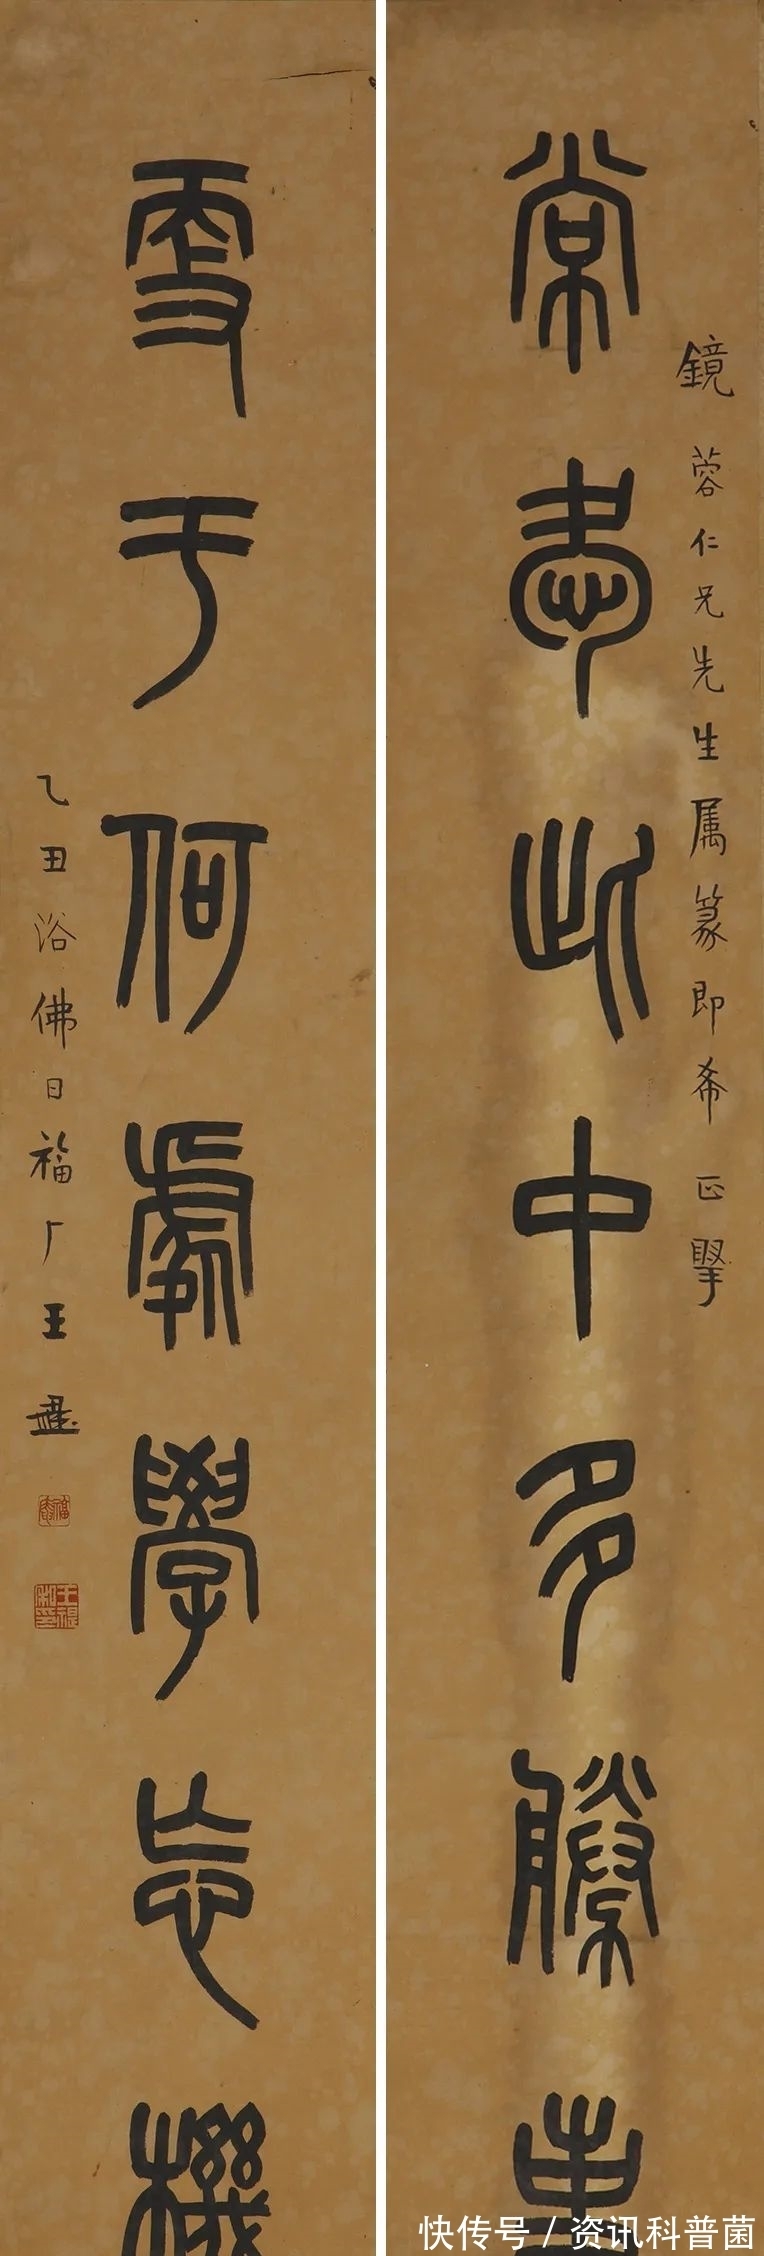 鏡蓉仁兄先生属篆即希正掔
常愛此中多勝事
更于何處學忘機
乙丑浴佛日福厂王禔
福庵
王禔私印
快传号 / 资讯科普菌